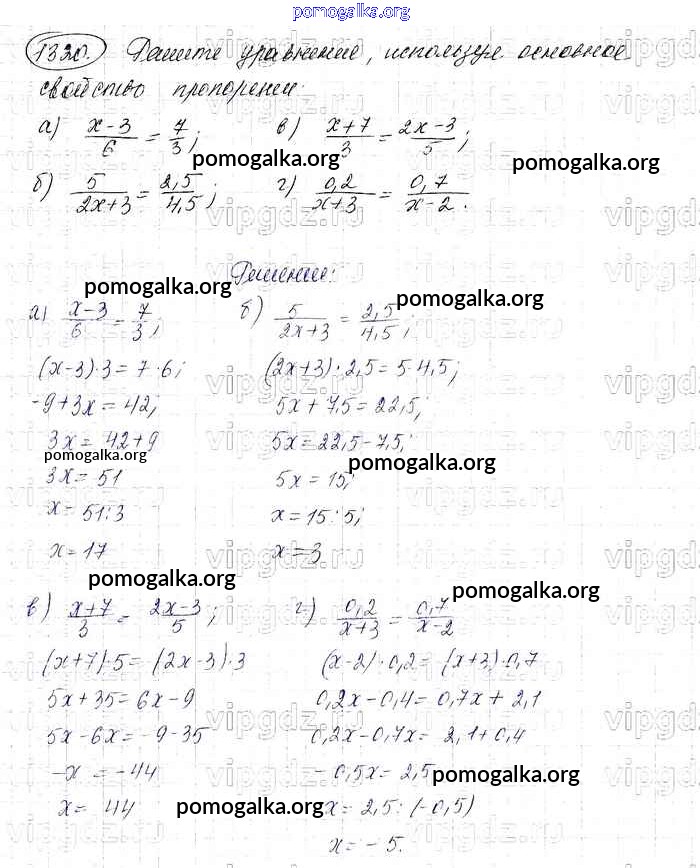 pomogalka.org
1320. Решите уравнение, используя основное
свойство пропорции:
а) (x-3)/6 = 7/3; в) (x+7)/3 = (2x-3)/5;
pomogalka.org pomogalka.org
б) 5/(2x+3) = 2,5/4,5; г) 0,2/(x+3) = 0,7/(x-2).
vipgdz.ru vipgdz.ru vipgdz.ru
Решение:
pomogalka.org pomogalka.org
а) (x-3)/6 = 7/3; б) 5/(2x+3) = 2,5/4,5;
(x-3)·3 = 7·6; (2x+3)·2,5 = 5·4,5;
-9+3x = 42; 5x+7,5 = 22,5;
3x = 42+9 5x = 22,5-7,5;
pomogalka.org pomogalka.org
3x = 51 5x = 15;
x = 51:3 x = 15:5;
x = 17 x = 3
pomogalka.org pomogalka.org
в) (x+7)/3 = (2x-3)/5; г) 0,2/(x+3) = 0,7/(x-2)
(x+7)·5 = (2x-3)·3 (x-2)·0,2 = (x+3)·0,7
5x+35 = 6x-9 0,2x-0,4 = 0,7x+2,1
5x-6x = -9-35 0,2x-0,7x = 2,1+0,4
-x = -44 -0,5x = 2,5
pomogalka.org
x = 44 pomogalka.org x = 2,5:(-0,5)
x = -5.